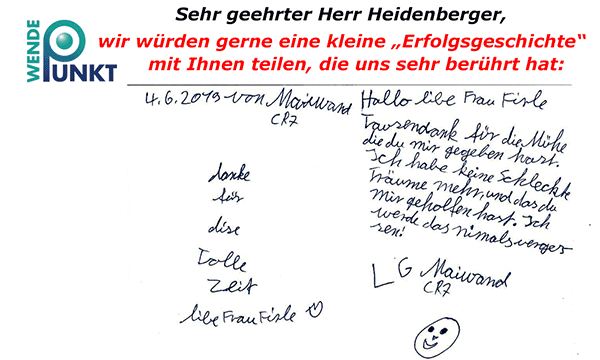 WENDE
PUNKT
Sehr geehrter Herr Heidenberger,
wir würden gerne eine kleine „Erfolgsgeschichte“
mit Ihnen teilen, die uns sehr berührt hat:
4.6.2019 von Maiwand
CR7
danke
für
dise
Tolle
Zeit
libe Frau Fisle
Hallo libe Frau Fisle
Tausendank für die Mühe
die du mir gegeben hast.
Ich habe keine Schleckte
Träume mehr, und das du
mir geholfen hast. Ich
werde das nimals verges
sen!
LG Maiwand
CR7